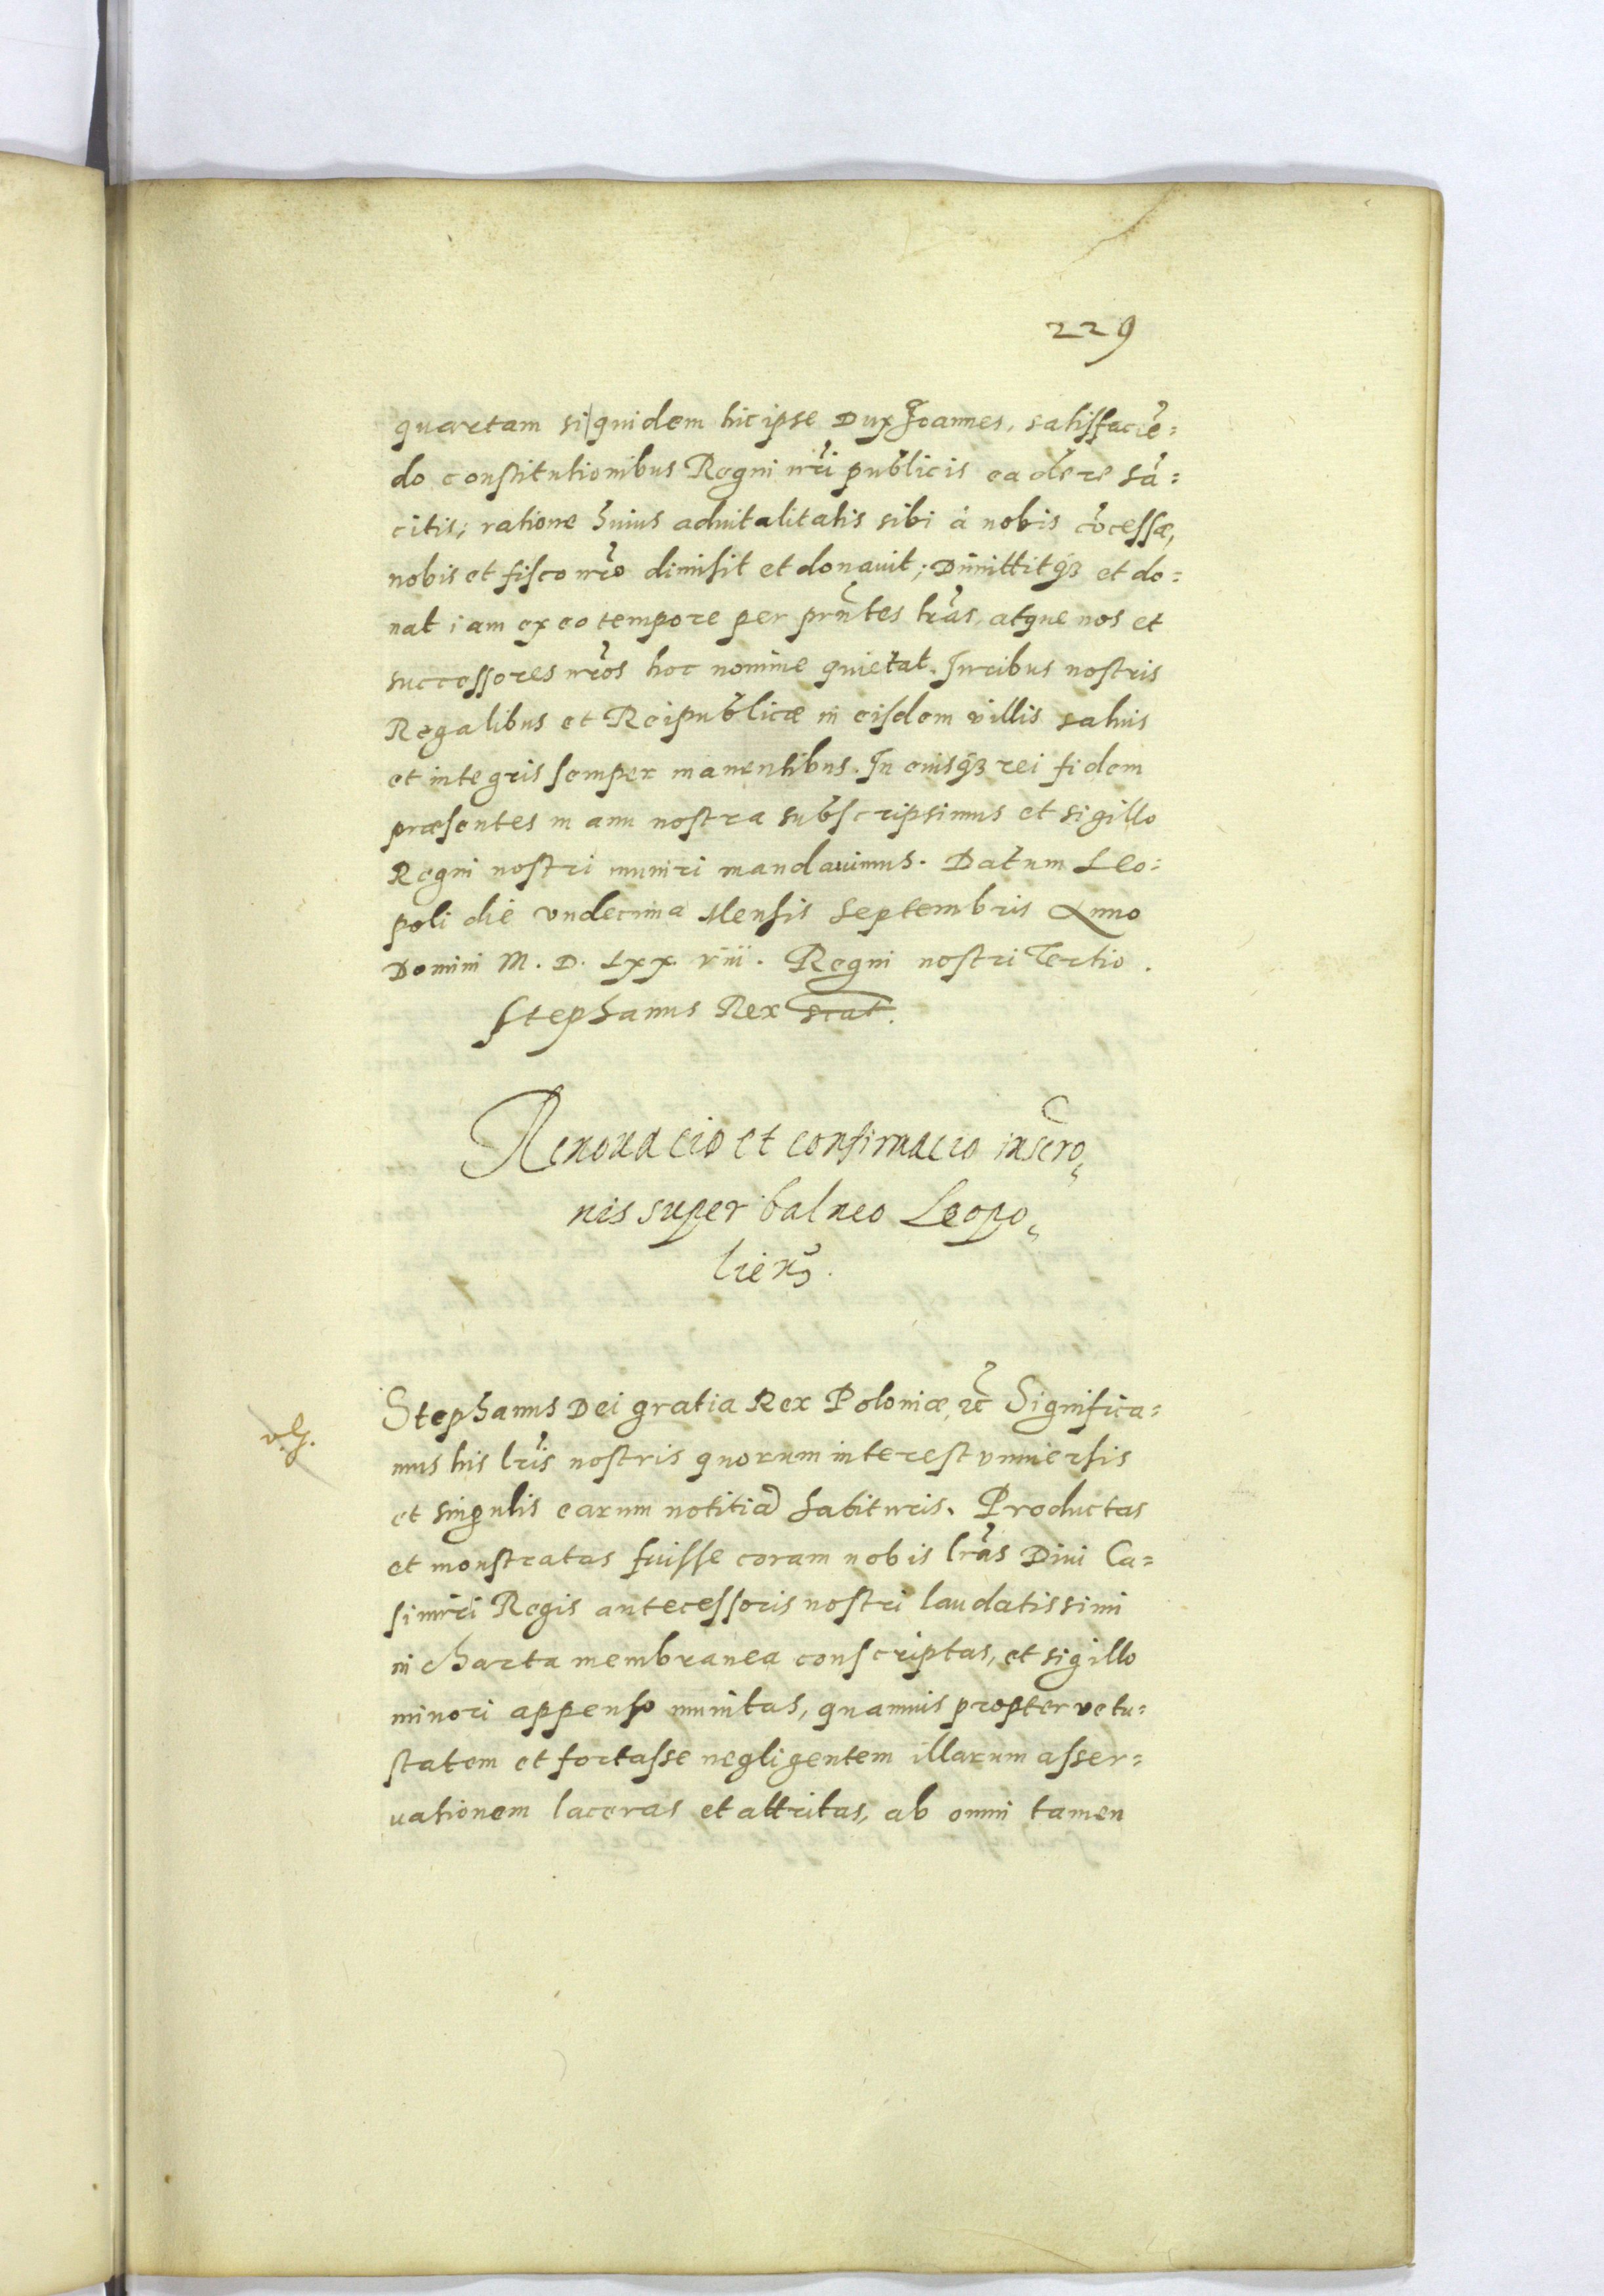 229
quartam si|quidem hic ipse Dux Joannes, satisfaciē=
do constitutionibus Regni nr̃i publicis ea de re sā=
citis; ratione huius aduitalitatis sibi à nobis cōcessæ,
nobis et fisco nr̃o dimisit et donauit; Dimittitq́ꝫ et do=
nat iam ex eo tempore per prñtes lr̃as, atque nos et
successores nr̃os hoc nomine quietat. Juribus nostris
Regalibus et Reipublicæ in eisdem villis saluis
et integris semper manentibus. In cuiusq́ꝫ rei fidem
præsentes manu nostra subscripsimus et sigillo
Regni nostri muniri mandauimus. Datum Leo=
poli die vndecima Mensis Septembris Anno
Domini M. D. Lxx viii. Regni nostri Tertio.
Stephanus Rex ssat.
Renouacio et confirmacio inscro,
nis super balneo Leopo,
lieñ.
Stephanus Dei gratia Rex Poloniæ, ꝛc̃ Significa=
mus his lr̃is nostris quorum interest vniuersis
et singulis earum notitiā habituris. Productas
et monstratas fuisse coram nobis lr̃as Diui Ca=
simiri Regis antecessoris nostri laudatissimi
in charta membranea conscriptas, et sigillo
minori appenso munitas, quamuis propter vetu=
statem et fortasse negligentem illarum asser=
uationem laceras et attritas, ab omni tamen